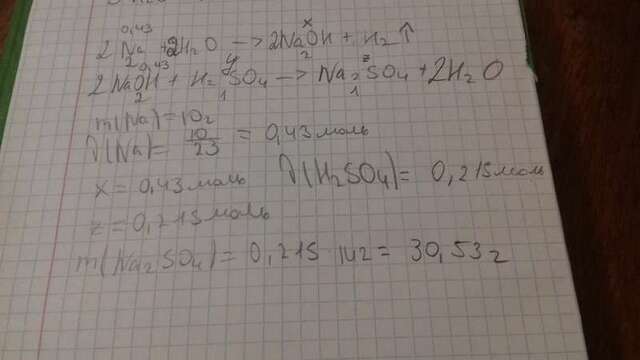 0,43 x
2Na + 2H₂O —> 2NaOH + H₂↑
2 2
0,43 y z
2NaOH + H₂SO₄ —> Na₂SO₄ + 2H₂O
2 1 1
m(Na) = 10г
ν(Na) = 10/23 = 0,43 моль
x = 0,43 моль ν(H₂SO₄) = 0,215 моль
z = 0,215 моль
m(Na₂SO₄) = 0,215 142 = 30,53г